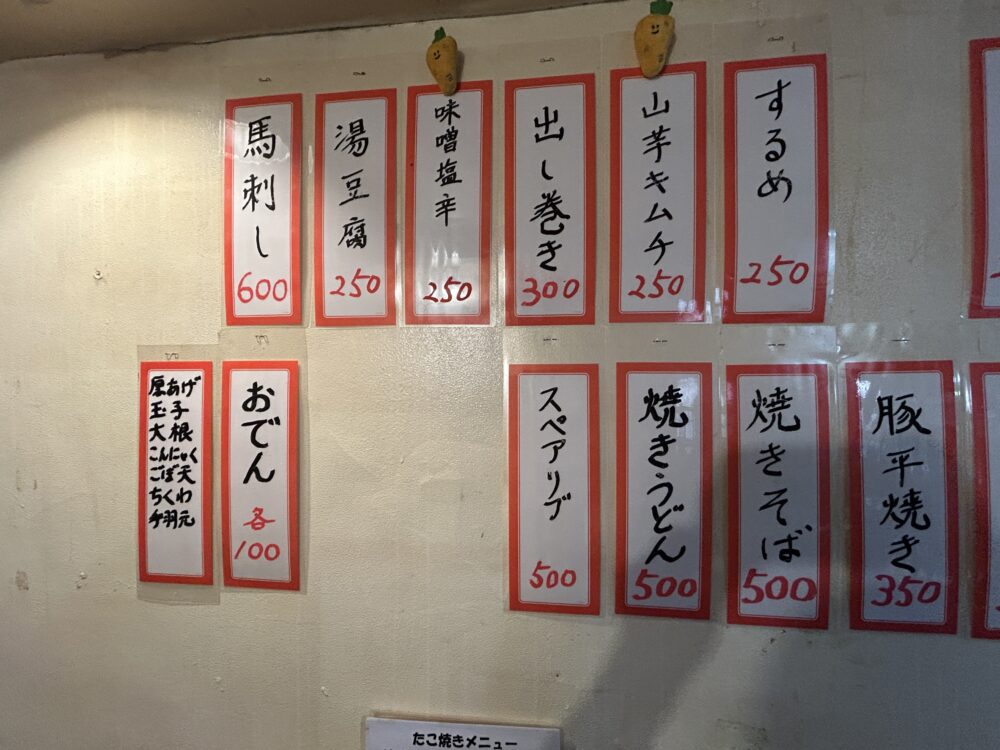 するめ
250
山芋キムチ
250
出し巻き
300
味噌塩辛
250
湯豆腐
250
馬刺し
600
豚平焼き
350
焼きそば
500
焼きうどん
500
スペアリブ
500
おでん
各
100
厚あげ
玉子
大根
こんにゃく
ごぼ天
ちくわ
手羽元
たこ焼きメニュー